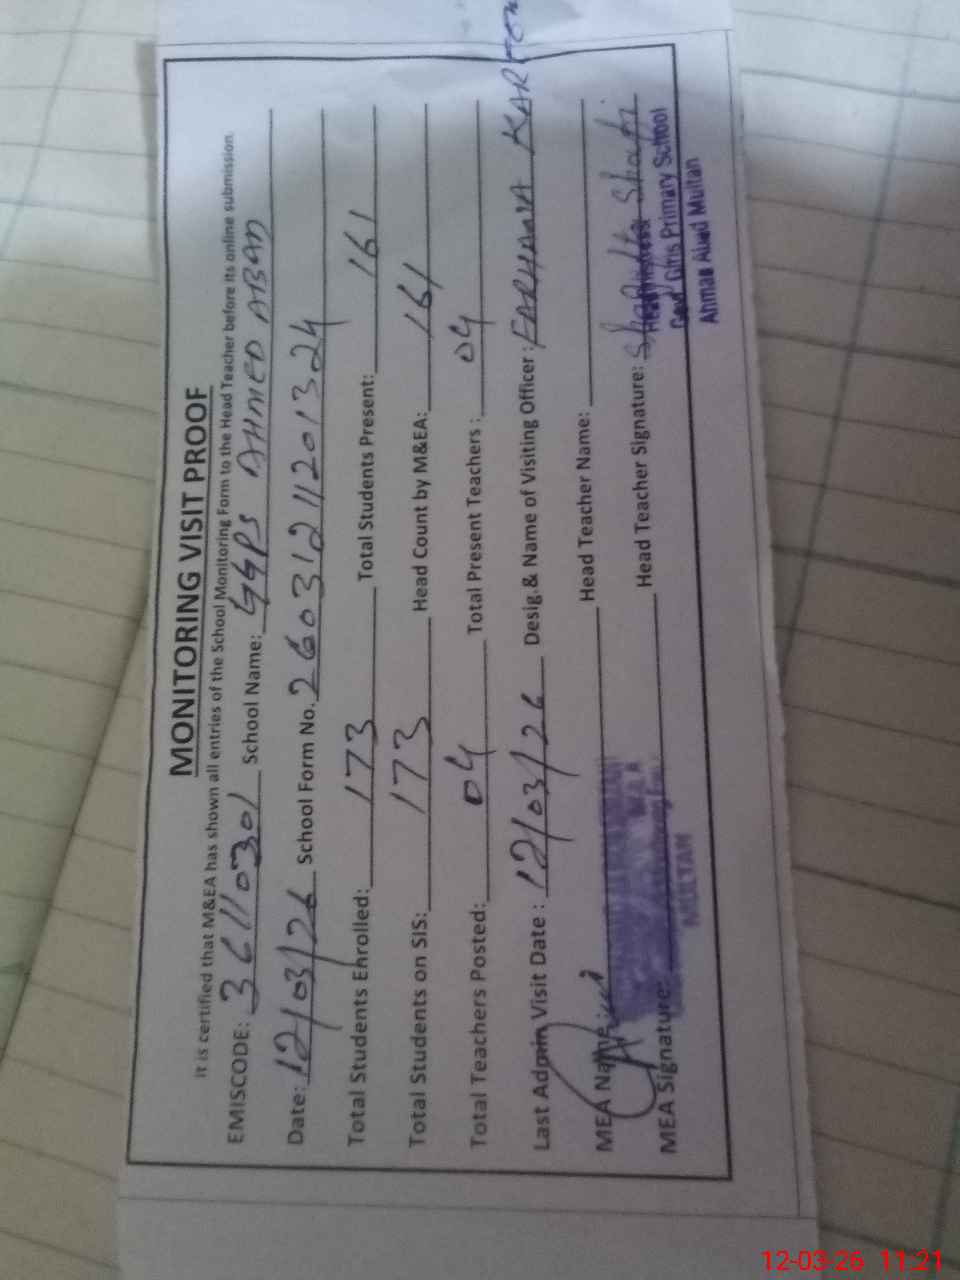 MONITORING VISIT PROOF
It is certified that M&EA has shown all entries of the School Monitoring Form to the Head Teacher before its online submission.
EMISCODE: 36110301 School Name: GGPS AHMED ABAD
Date: 12/03/26 School Form No. 26031211201324
Total Students Enrolled: 173 Total Students Present: 161
Total Students on SIS: 173 Head Count by M&EA: 161
Total Teachers Posted: 04 Total Present Teachers : 04
Last Admin Visit Date : 12/03/26 Desig.& Name of Visiting Officer : FARHANA KAREEM
MEA Name: Head Teacher Name:
MEA Signature: Head Teacher Signature: Shafi
MULTAN
Headmistress
Govt Girls Primary School
Ahmad Abad Multan
12-03-26 11:21